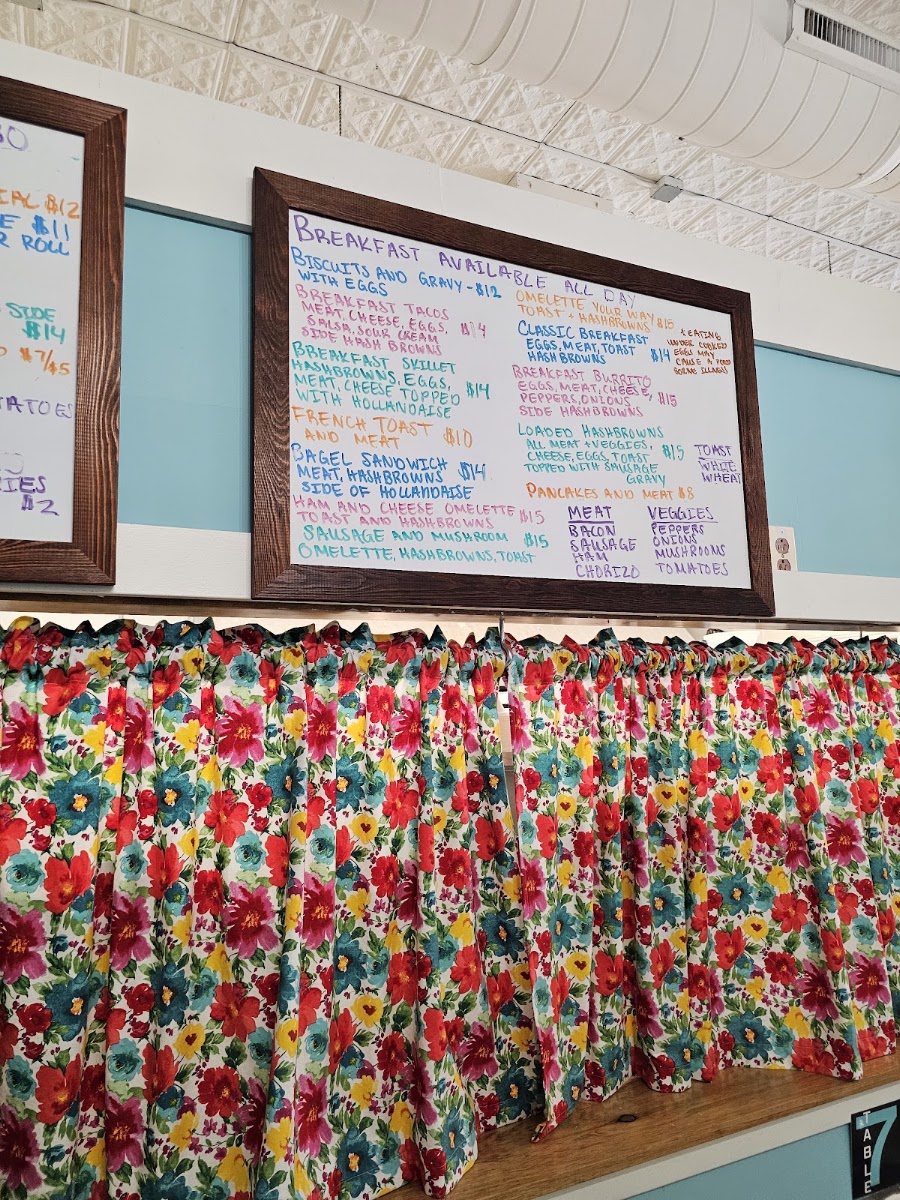 $12
$11
ROLL
SIDE
$14
$7/$5
$2
BREAKFAST AVAILABLE ALL DAY
BISCUITS AND GRAVY - $12
WITH EGGS
BREAKFAST TACOS
MEAT, CHEESE, EGGS, $14
SALSA, SOUR CREAM
SIDE HASH BROWNS
BREAKFAST SKILLET
HASHBROWNS, EGGS,
MEAT, CHEESE TOPPED $14
WITH HOLLANDAISE
FRENCH TOAST
AND MEAT $10
BAGEL SANDWICH
MEAT, HASHBROWNS $14
SIDE OF HOLLANDAISE
HAM AND CHEESE OMELETTE $15
TOAST AND HASHBROWNS
SAUSAGE AND MUSHROOM $15
OMELETTE, HASHBROWNS, TOAST
OMELETTE YOUR WAY $15
TOAST + HASHBROWNS
CLASSIC BREAKFAST
EGGS, MEAT, TOAST $14
HASH BROWNS
* EATING
UNDER COOKED
EGGS MAY
CAUSE A FOOD
BORNE ILLNESS
BREAKFAST BURRITO
EGGS, MEAT, CHEESE,
PEPPERS, ONIONS $15
SIDE HASHBROWNS
LOADED HASHBROWNS
ALL MEAT + VEGGIES,
CHEESE, EGGS, TOAST $15
TOPPED WITH SAUSAGE
GRAVY
TOAST
WHITE
WHEAT
PANCAKES AND MEAT $8
MEAT
BACON
SAUSAGE
HAM
CHORIZO
VEGGIES
PEPPERS
ONIONS
MUSHROOMS
TOMATOES
TABLE
7